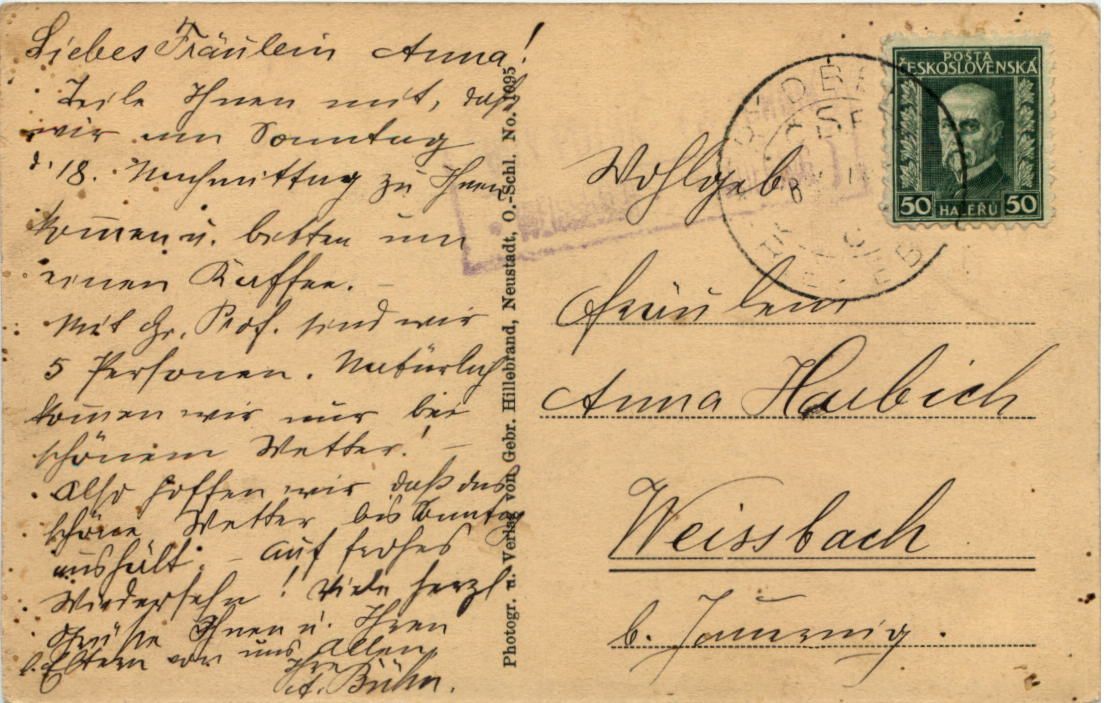 Liebes Fräulein Anna!
Teile Ihnen mit, daß
wir am Sonntag
d. 18. Nachmittag zu Ihnen
kommen u. bitten um
einen Kaffee. –
Mit Hr. Prof. sind wir
5 Personen. Natürlich
kommen wir nur bei
schönem Wetter! –
Also hoffen wir daß das
schöne Wetter bis Sonntag
aushält. – Auf frohes
Wiedersehn! Viele herzl.
Grüße Ihnen u. Ihren
l. Eltern von uns Allen
Photogr. u. Verlag von Gebr. Hillebrand, Neustadt, O.-Schl. No. 1095
POŠTA
ČESKOSLOVENSKÁ
50 HALÉŘŮ 50
Wohlgeb
Fräulein
Anna Haebich
Weissbach
b. Jauernig.